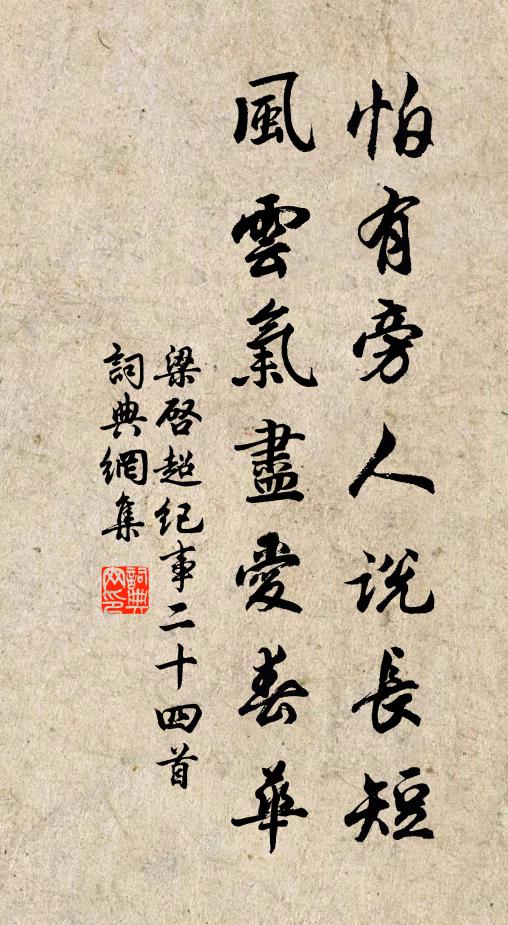 怕有旁人説長短
風雲氣盡愛春華
梁啓超紀事二十四首
詞典網集
詞典網印